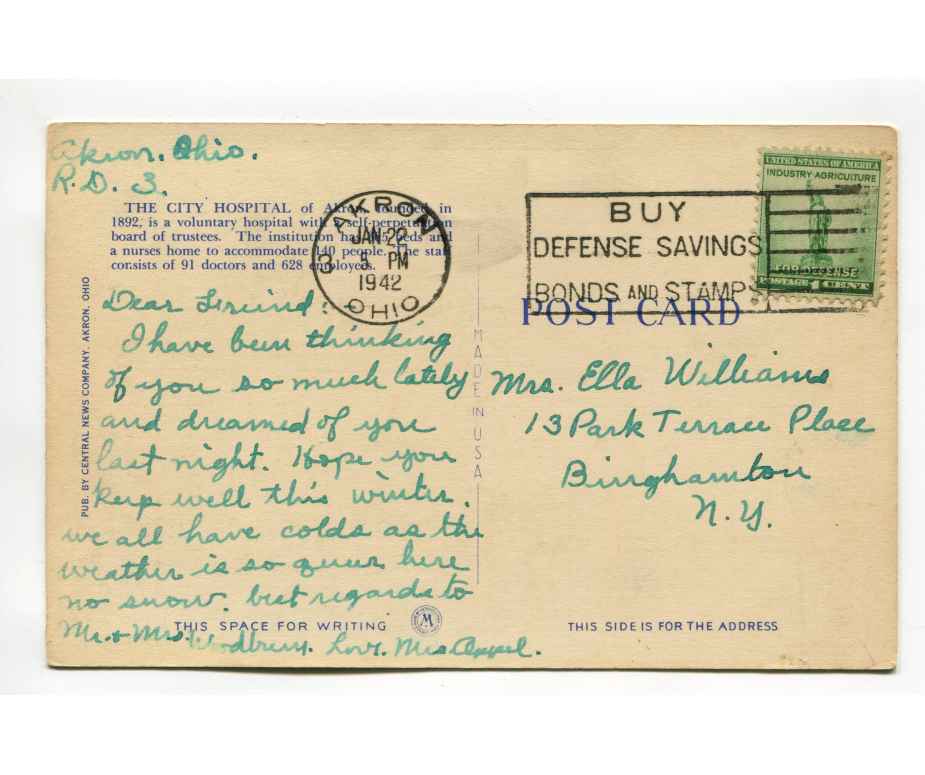 Akron, Ohio.
R.D. 3.
THE CITY HOSPITAL of Akron, founded in
1892, is a voluntary hospital with self-perpetuation
board of trustees. The institution has beds and
a nurses home to accommodate 140 people. The staff
consists of 91 doctors and 628 employees.
AKRON OHIO
JAN 22
5 PM
1942
BUY
DEFENSE SAVINGS
BONDS AND STAMPS
UNITED STATES OF AMERICA
INDUSTRY AGRICULTURE
FOR DEFENSE
POSTAGE 1 CENTS
POST CARD
PUB. BY CENTRAL NEWS COMPANY, AKRON, OHIO
Dear Friend:
I have been thinking
of you so much lately
and dreamed of you
last night. Hope you
keep well this winter.
we all have colds as the
weather is so queer here
no snow. best regards to
Mr. & Mrs. Woodbury. Love. Mrs Appel.
MADE IN USA
Mrs. Ella Williams
13 Park Terrace Place
Binghamton
N.Y.
THIS SPACE FOR WRITING
M
THIS SIDE IS FOR THE ADDRESS